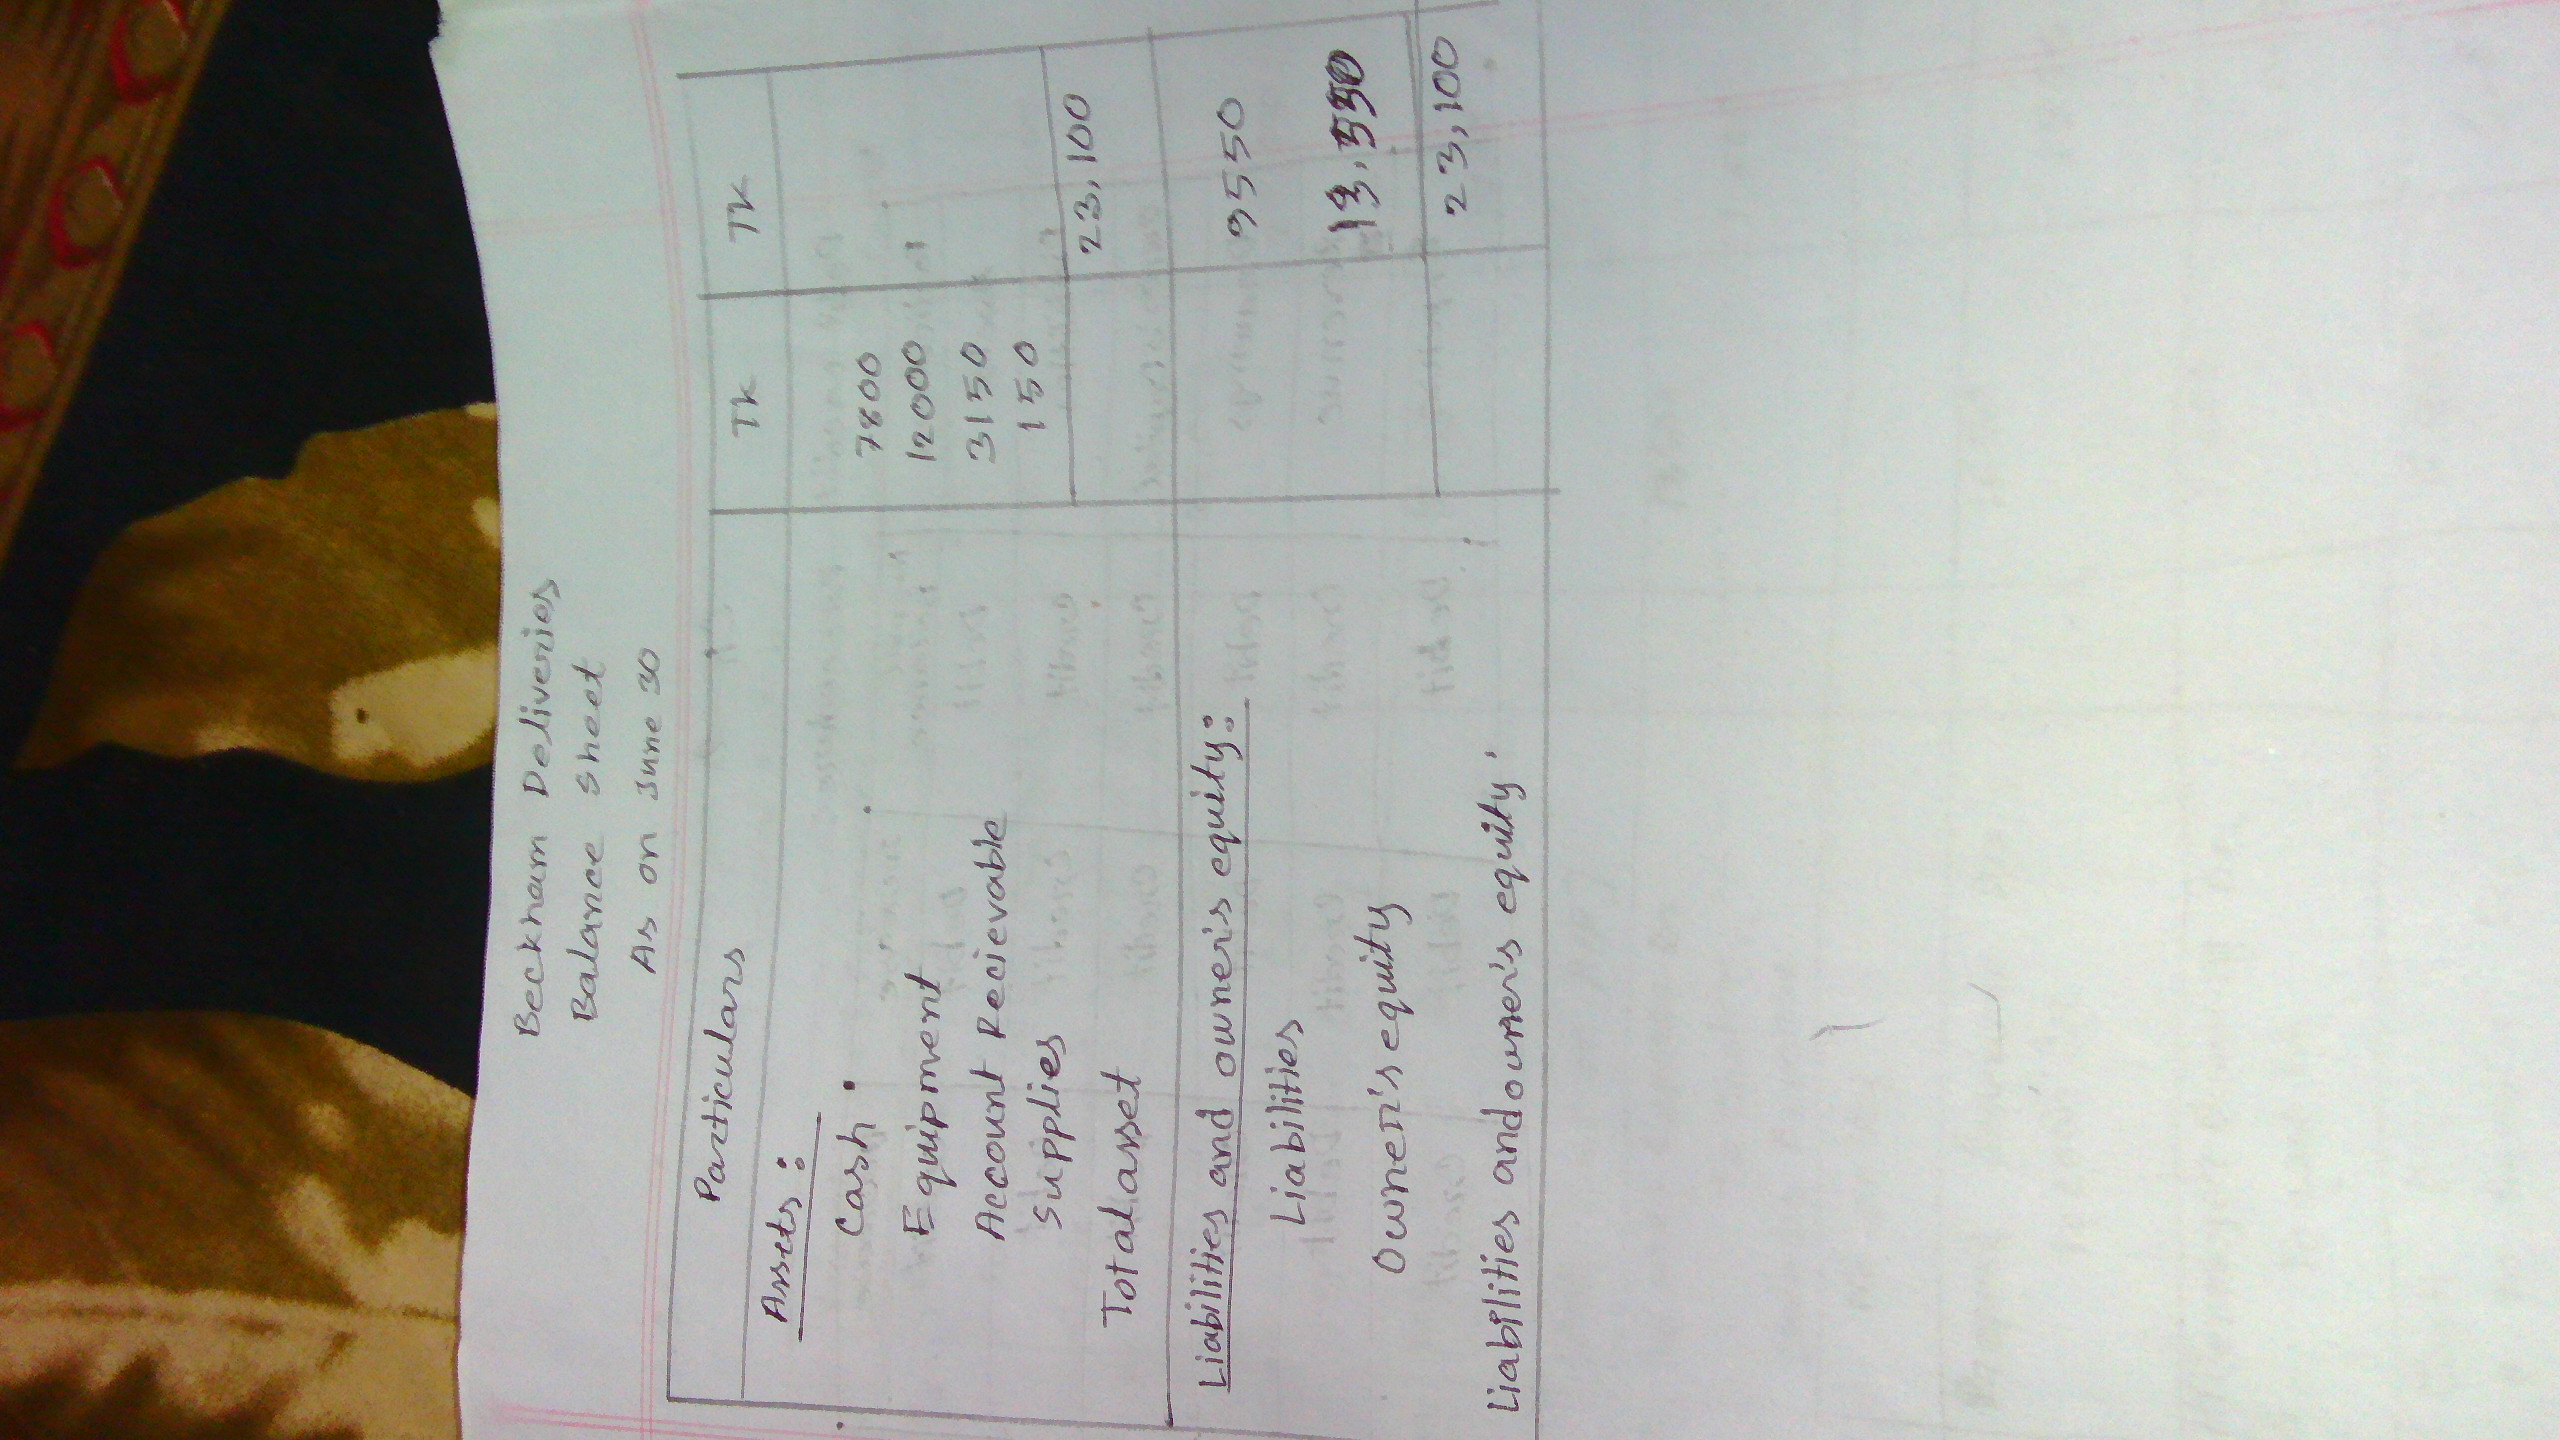 Beckham Deliveries
Balance Sheet
As on June 30
Particulars TK TK
Assets:
Cash 7800
Equipment 12000
Account Recievable 3150
Supplies 150
Total asset 23,100
Liabilities and owner's equity:
Liabilities 9550
Owner's equity 13,550
Liabilities and owner's equity. 23,100